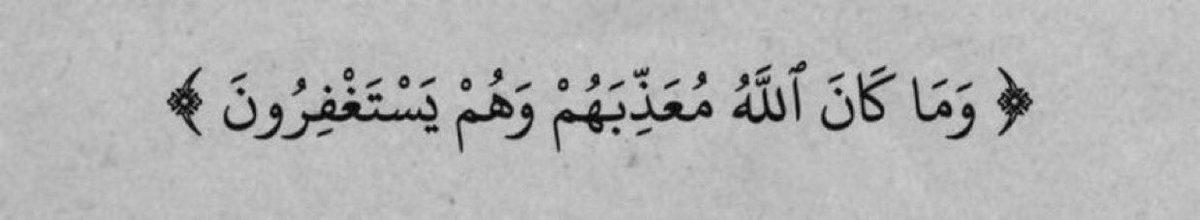 ﴿ وَمَا كَانَ ٱللَّهُ مُعَذِّبَهُمْ وَهُمْ يَسْتَغْفِرُونَ ﴾